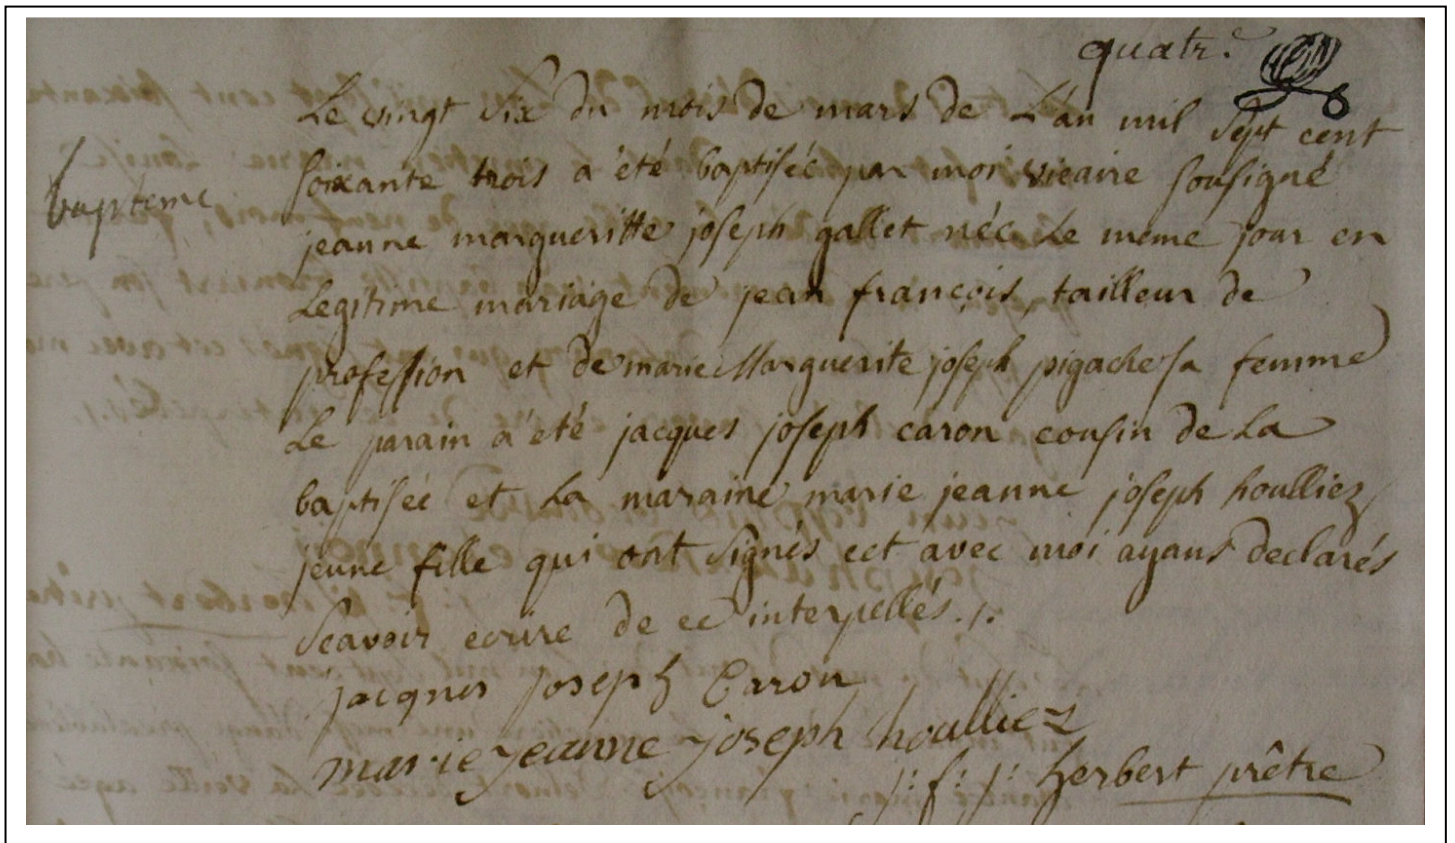 quatr.e
Le vingt six du mois de mars de L'an mil sept cent
baptême
soixante trois a été baptisée par moi vicaire sousigné
jeanne margueritte joseph gallet née Le meme jour en
Legitime mariage de jean françois tailleur de
profession et de marie Marguerite joseph pigache sa femme
Le parain a été jacques joseph caron cousin de La
baptisée et La maraine marie jeanne joseph houlliez
jeune fille qui ont signés ect avec moi ayans declarés
scavoir ecrire de ce interpellés./.
jacques joseph Caron
marie jeanne joseph houlliez
j: f: j: herbert prêtre